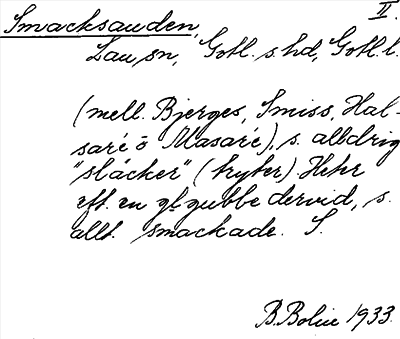 Smacksauden, II.
Lau, sn, Gotl. s. hd, Gotl. l.
(mell. Bjerges, Smiss, Hal-
saré o Masaré), s. alldrig
"släcker" (tryter). Hehr
eft. en gl gubbe dervid, s.
allt. smackade. S.
B. Bolin 1933.